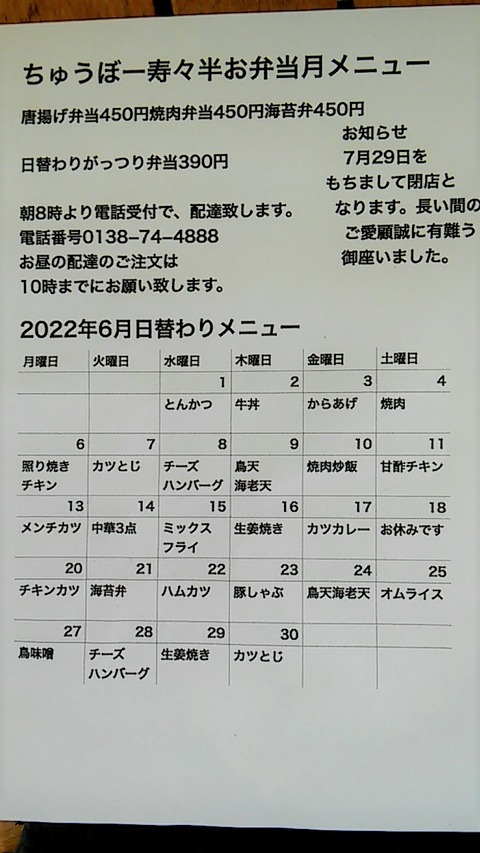 ちゅうぼー寿々半お弁当月メニュー
唐揚げ弁当450円焼肉弁当450円海苔弁450円
お知らせ
日替わりがっつり弁当390円
7月29日を
もちまして閉店と
朝8時より電話受付で、配達致します。
なります。長い間の
電話番号0138−74−4888
ご愛顧誠に有難う
お昼の配達のご注文は
御座いました。
10時までにお願い致します。
2022年6月日替わりメニュー
月曜日 火曜日 水曜日 木曜日 金曜日 土曜日
1 2 3 4
とんかつ 牛丼 からあげ 焼肉
6 7 8 9 10 11
照り焼き カツとじ チーズ 鳥天 焼肉炒飯 甘酢チキン
チキン ハンバーグ 海老天
13 14 15 16 17 18
メンチカツ 中華3点 ミックス 生姜焼き カツカレー お休みです
フライ
20 21 22 23 24 25
チキンカツ 海苔弁 ハムカツ 豚しゃぶ 鳥天海老天 オムライス
27 28 29 30
鳥味噌 チーズ 生姜焼き カツとじ
ハンバーグ